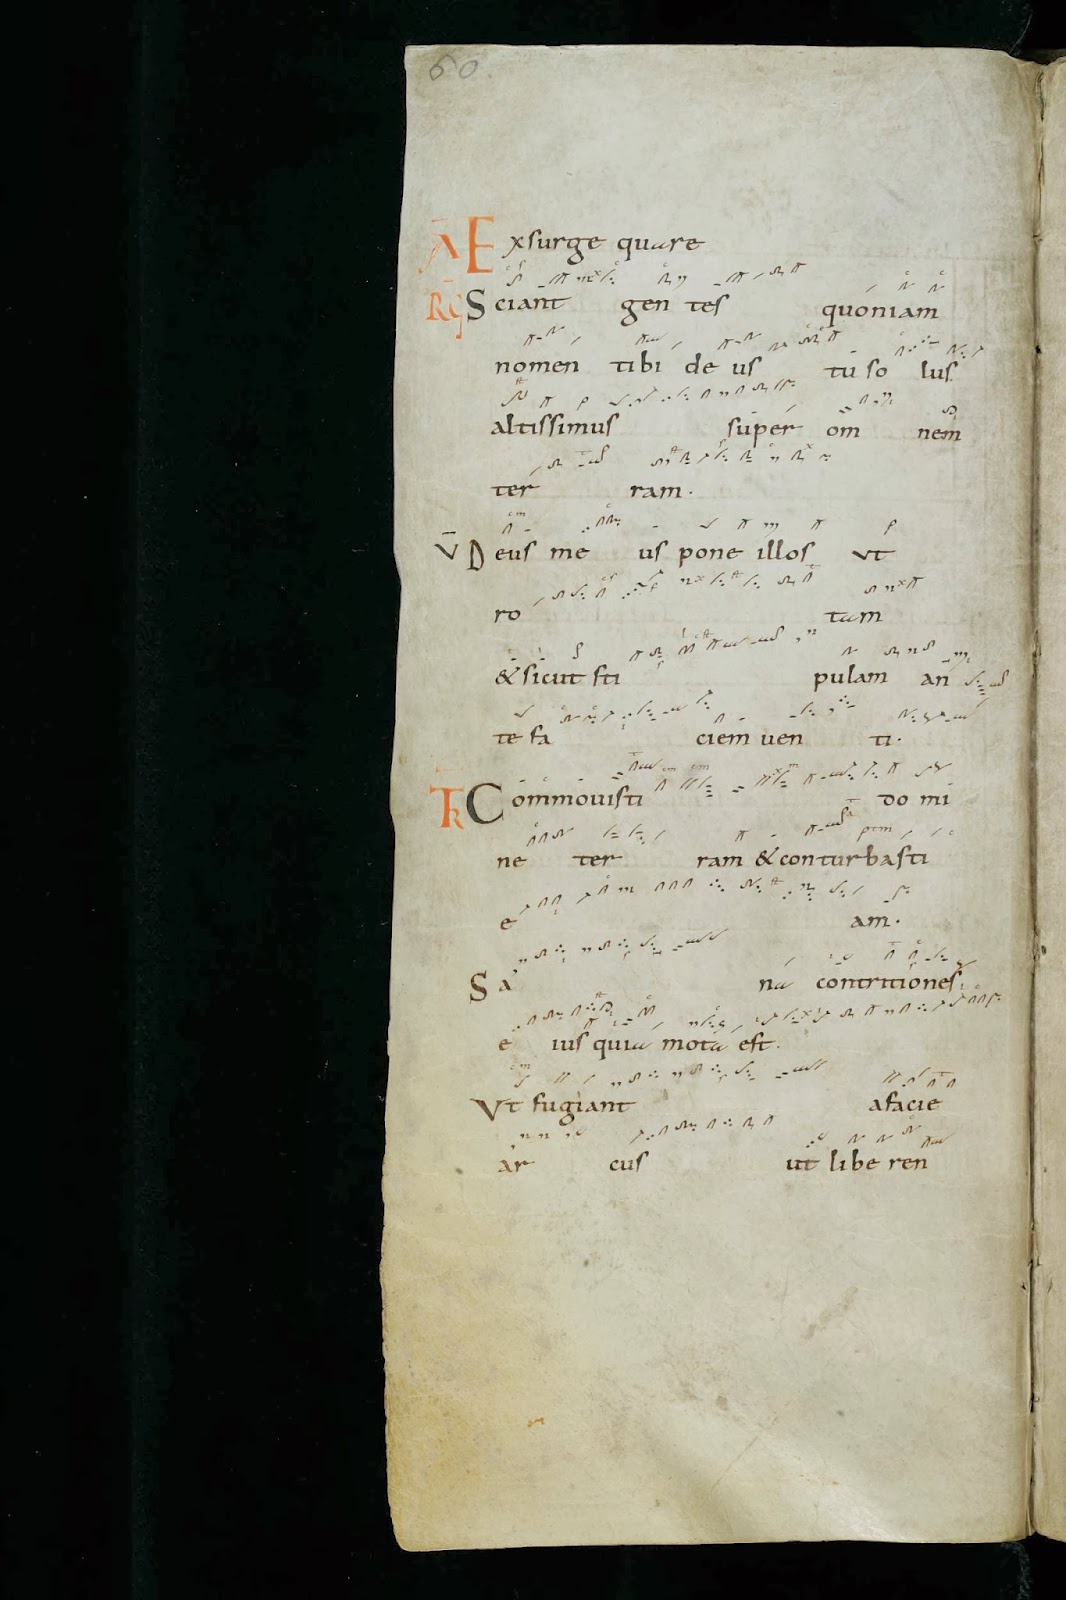 60
A Exsurge quare
RG Sciant gen tes quoniam
nomen tibi de us tu so lus
altissimus super om nem
ter ram.
V Deus me us pone illos ut
ro tam
& sicut sti pulam an
te fa ciem uen ti.
TR Commouisti do mi
ne ter ram & conturbasti
e am.
Sa na contritiones
e ius quia mota est.
Ut fugiant afacie
ar cus ut libe ren